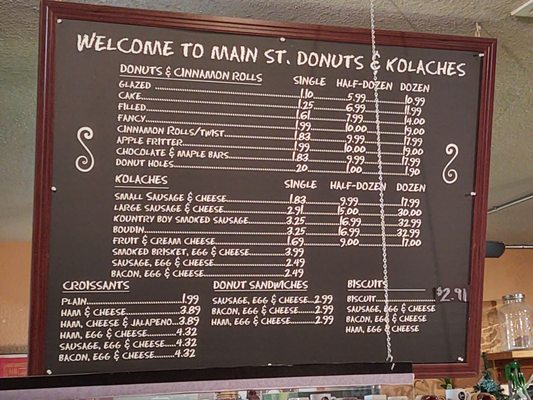 WELCOME TO MAIN ST. DONUTS & KOLACHES
DONUTS & CINNAMON ROLLS SINGLE HALF-DOZEN DOZEN
GLAZED 1.10 5.99 10.99
CAKE 1.25 6.99 11.99
FILLED 1.61 7.99 14.00
FANCY 1.99 10.00 19.00
CINNAMON ROLLS/TWIST 1.83 9.99 17.99
APPLE FRITTER 1.99 10.00 19.00
CHOCOLATE & MAPLE BARS 1.83 9.99 17.99
DONUT HOLES .20 1.00 1.90
KOLACHES SINGLE HALF-DOZEN DOZEN
SMALL SAUSAGE & CHEESE 1.83 9.99 17.99
LARGE SAUSAGE & CHEESE 2.91 15.00 30.00
KOUNTRY BOY SMOKED SAUSAGE 3.25 16.99 32.99
BOUDIN 3.25 16.99 32.99
FRUIT & CREAM CHEESE 1.69 9.00 17.00
SMOKED BRISKET, EGG & CHEESE 3.99
SAUSAGE, EGG & CHEESE 2.49
BACON, EGG & CHEESE 2.49
CROISSANTS
PLAIN 1.99
HAM & CHEESE 3.89
HAM, CHEESE & JALAPENO 3.89
HAM, EGG & CHEESE 4.32
SAUSAGE, EGG & CHEESE 4.32
BACON, EGG & CHEESE 4.32
DONUT SANDWICHES
SAUSAGE, EGG & CHEESE 2.99
BACON, EGG & CHEESE 2.99
HAM, EGG & CHEESE 2.99
BISCUITS
BISCUIT $2.91
SAUSAGE, EGG & CHEESE
BACON, EGG & CHEESE
HAM, EGG & CHEESE